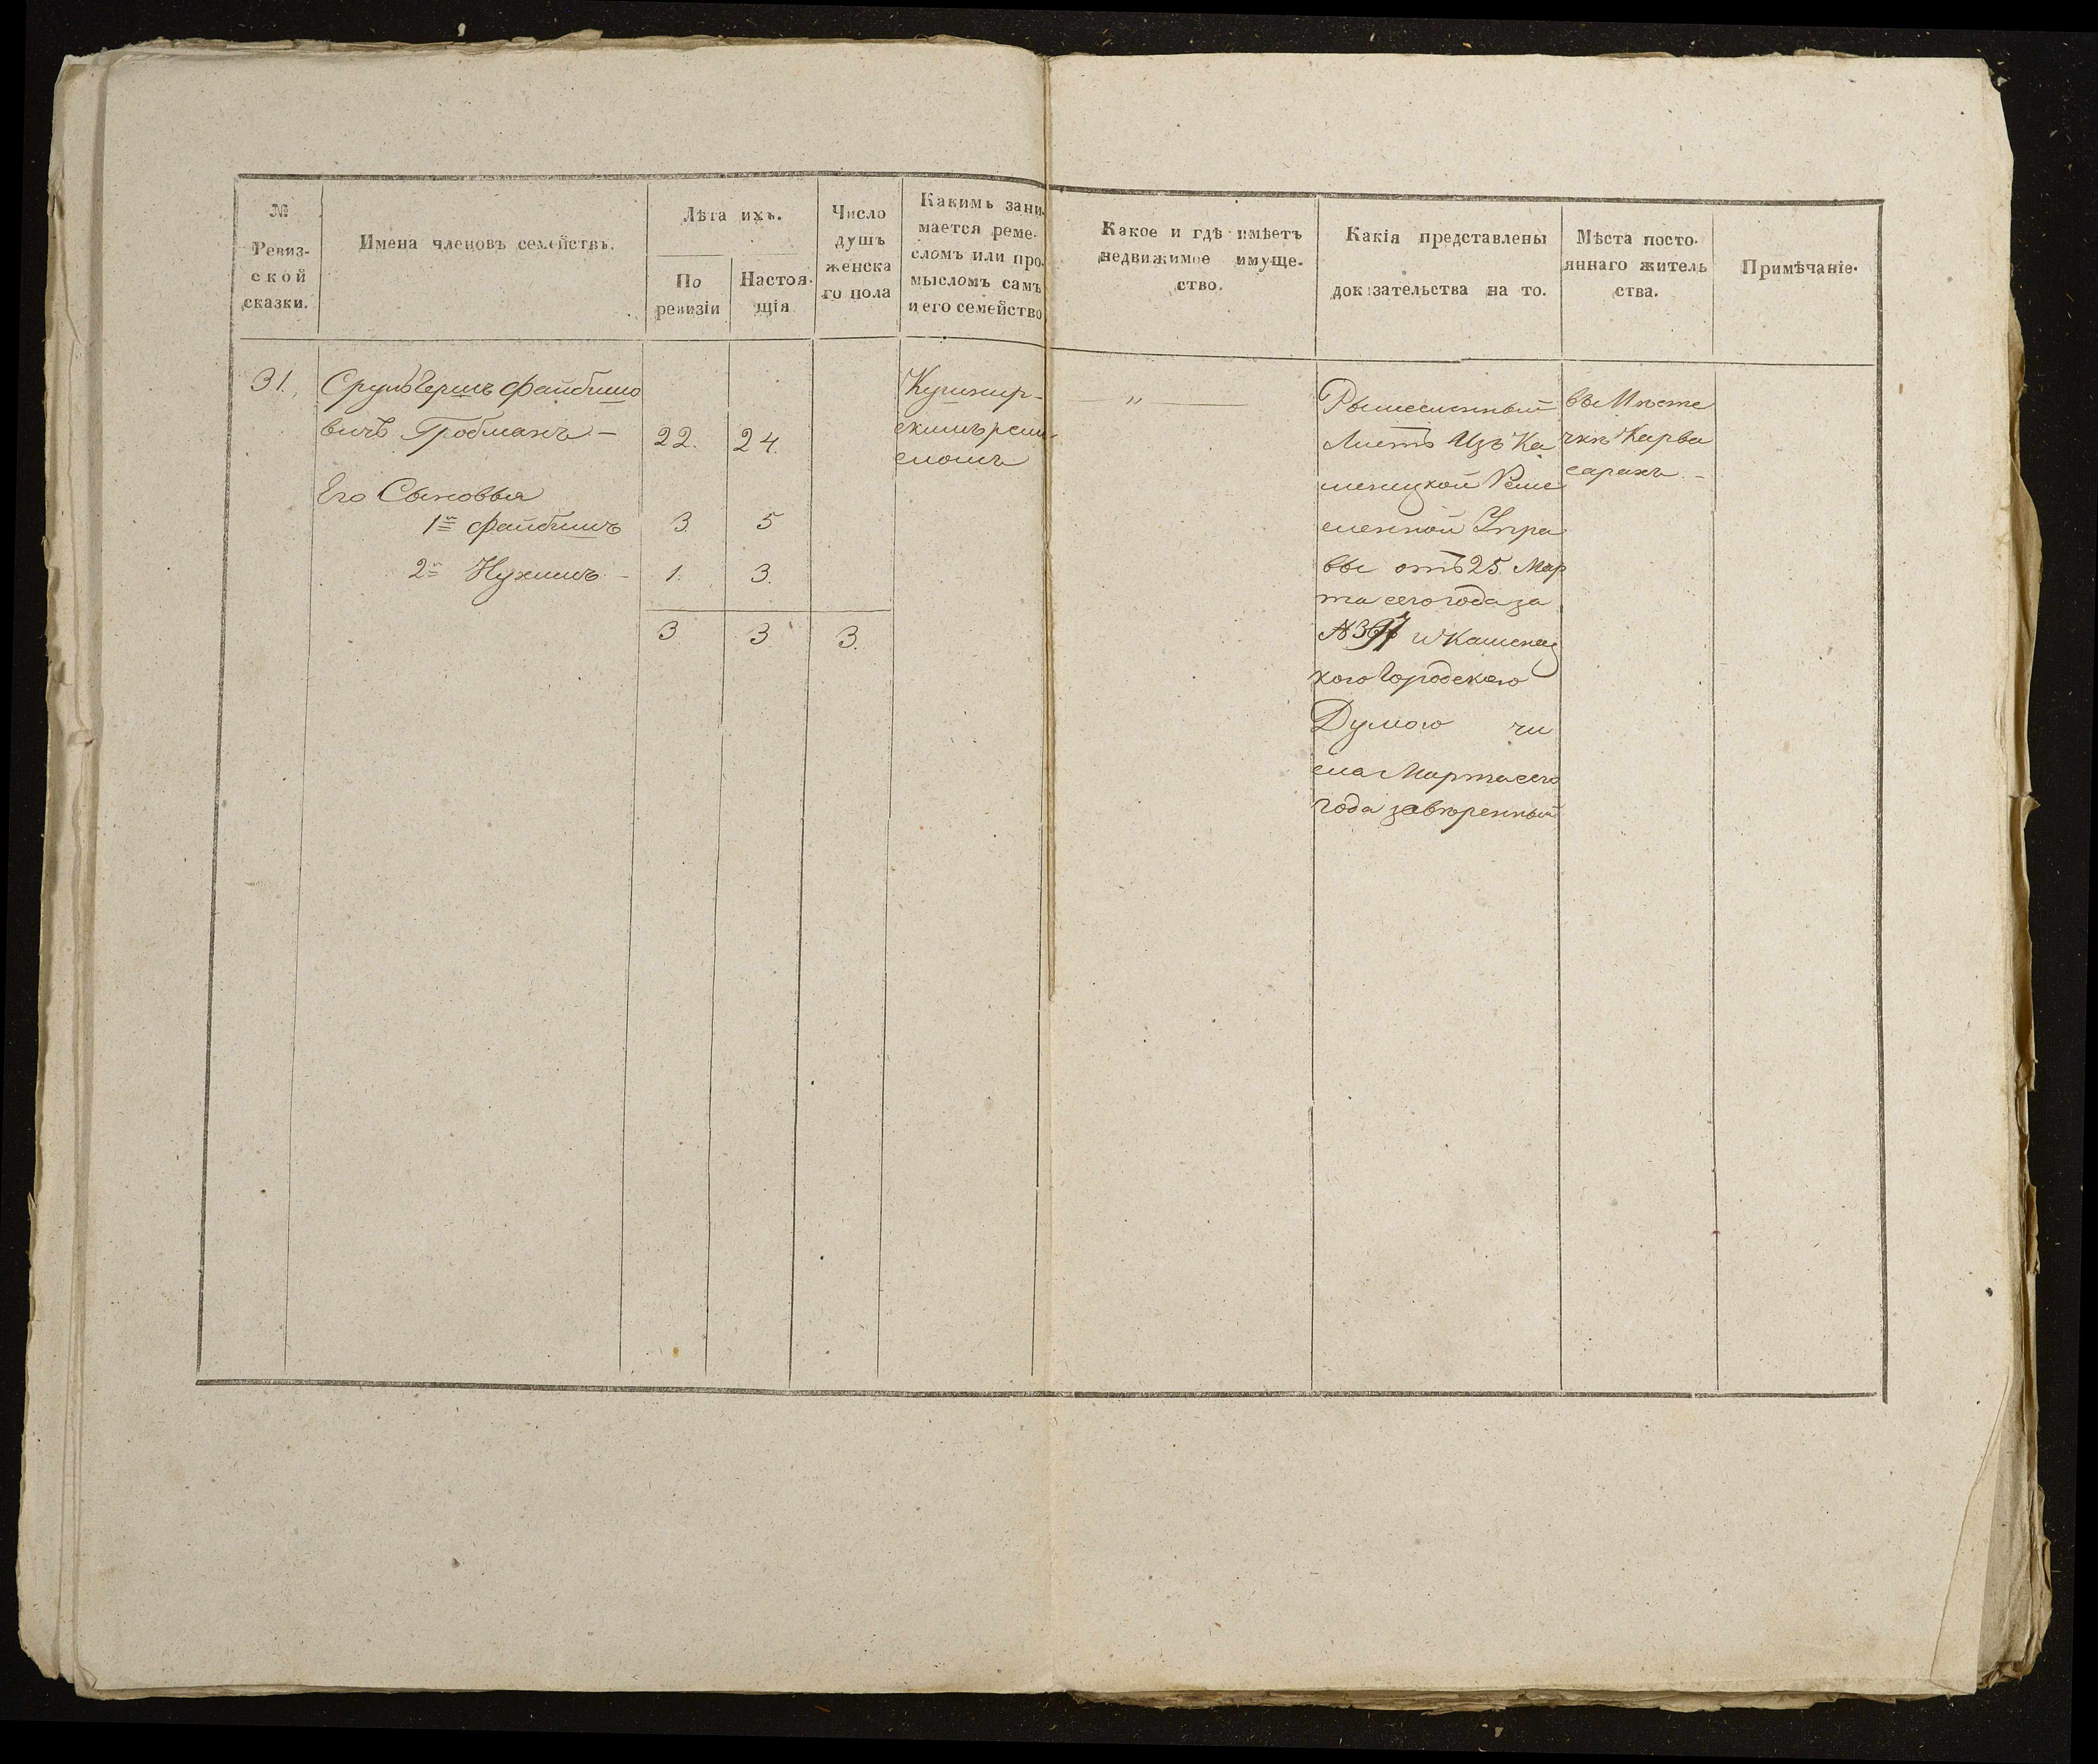 №
Ревиз-
ской
сказки.
Имена членовъ семействъ.
Лѣта ихъ.
По
ревизіи
Настоя-
щія
Число
душъ
женска
го пола
Какимъ зани-
мается реме-
сломъ или про-
мысломъ самъ
и его семейство
Какое и гдѣ имѣетъ
недвижимое имуще-
ство.
Какія представлены
доказательства на то.
Мѣста посто-
яннаго житель
ства.
Примѣчаніе.
31.
Сруль Гершъ Файбишо
вичъ Гробманъ —
22.
24.
Его Сыновья
1й Файбишъ
3.
5
2й Нухимъ —
1.
3.
3
3
3.
Кушнир-
скимъ реме-
сломъ
„
Рымесленный
Листъ Изъ Ка
меницкой Реме
сленной Упра
вы отъ 25. Мар
та сего года за
№ и Каменец
кого Городского
Думою чи
сла Марта сего
года завѣренный
въ Мѣсте
чкѣ Карва
сарахъ —